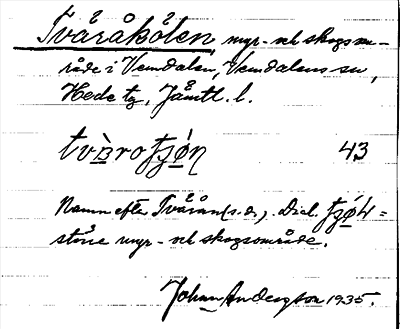 Tvåråkölen, myr- och skogsom-
råde i Vemdalen, Vemdalens sn,
Hede tg, Jämtl. l.
43
Namn efter Tvåran (s.d.). Dial.
större myr- och skogsområde.
Johan Andersson 1935.